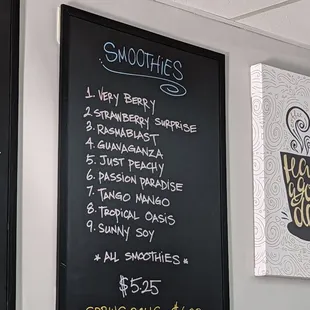 SMOOTHIES
1. VERY BERRY
2. STRAWBERRY SURPRISE
3. RASMABLAST
4. GUAVAGANZA
5. JUST PEACHY
6. PASSION PARADISE
7. TANGO MANGO
8. TROPICAL OASIS
9. SUNNY SOY
* ALL SMOOTHIES *
$5.25
a good